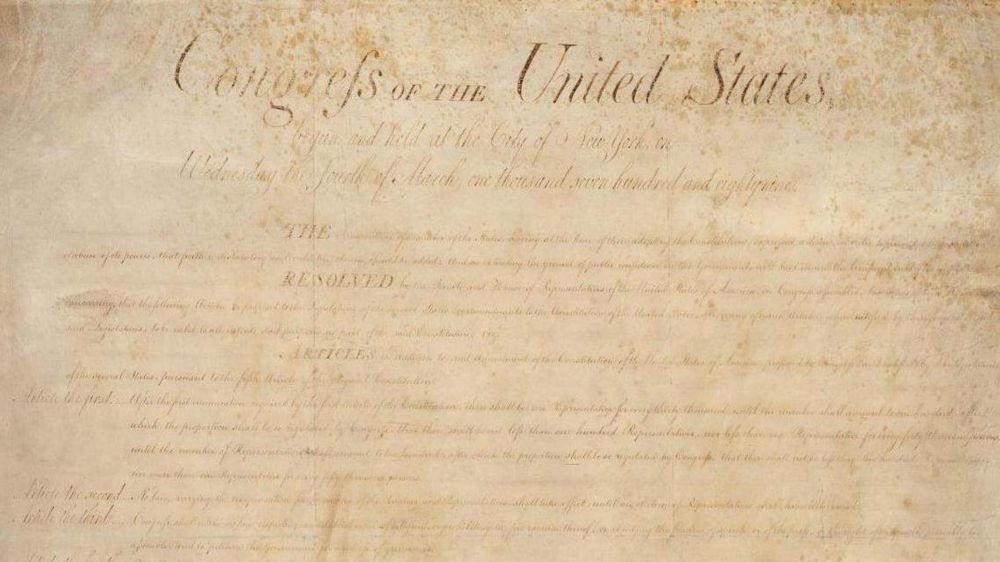 Congreſs OF THE United States,
begun and held at the City of New York, on
Wednesday the fourth of March, one thousand seven hundred and eighty nine.
THE of the States, having at the time of their adopting the Constitution, expressed a desire, in order to prevent
or abuse of its powers, that further declaratory and restrictive clauses should be added: And as extending the ground of public confidence in the Government, will best ensure the beneficent ends of
RESOLVED by the Senate and House of Representatives of the United States of America, in Congress assembled, two thirds
concurring, that the following Articles be proposed to the Legislatures of the several States, as amendments to the Constitution of the United States, or any of which Articles, when ratified by three fourths
said Legislatures, to be valid to all intents and purposes, as part of the said Constitution; viz.
ARTICLES in addition to, and amendment of the Constitution of the United States of America, proposed by Congress, and ratified by the Legislatures
of the several States, pursuant to the fifth Article of the original Constitution.
Article the first... After the first enumeration required by the first Article of the Constitution, there shall be one Representative for every thirty thousand, until the number shall amount to one hundred, after
which, the proportion shall be so regulated by Congress, that there shall be not less than one hundred Representatives, nor less than one Representative for every forty thousand persons,
until the number of Representatives shall amount to two hundred, after which the proportion shall be so regulated by Congress, that there shall not be less than two hundred Representatives,
nor more than one Representative for every fifty thousand persons.
Article the second... No law, varying the compensation for the services of the Senators and Representatives, shall take effect, until an election of Representatives shall have intervened.
Article the third... Congress shall make no law respecting an establishment of religion, or prohibiting the free exercise thereof; or abridging the freedom of speech, or of the press; or the right of the people peaceably to
assemble, and to petition the Government for a redress of grievances.